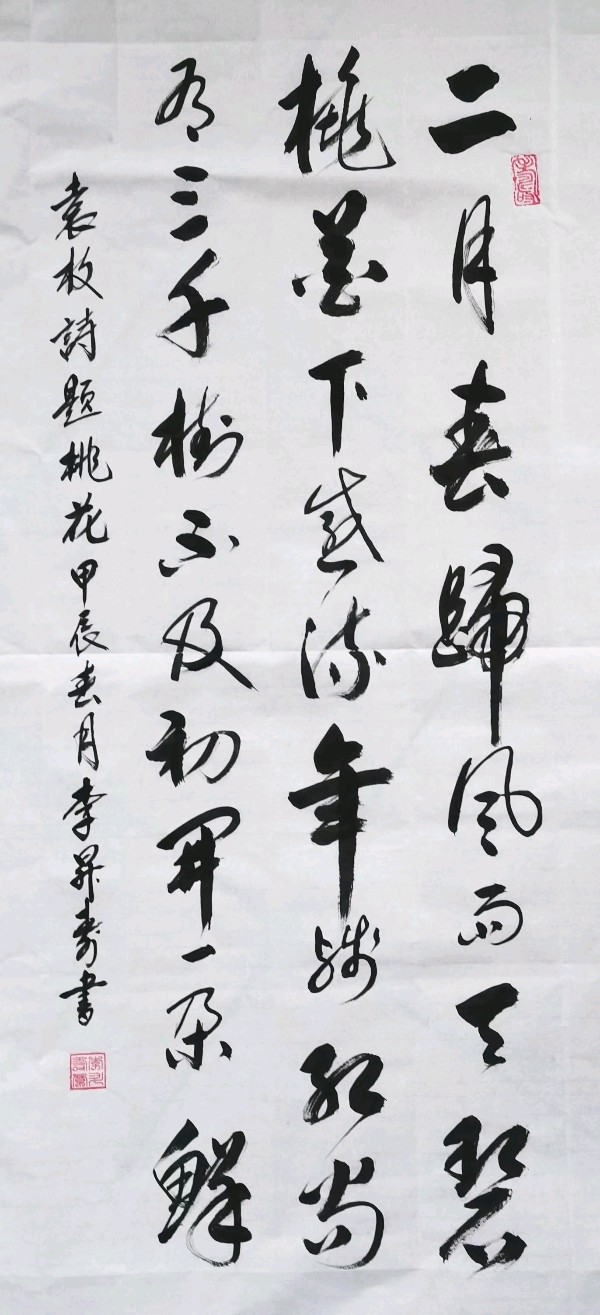 二月春歸風雨天碧
桃花下感流年殘紅尚
有三千樹不及初開一朵鮮
袁枚詩題桃花甲辰春月李昇壽書